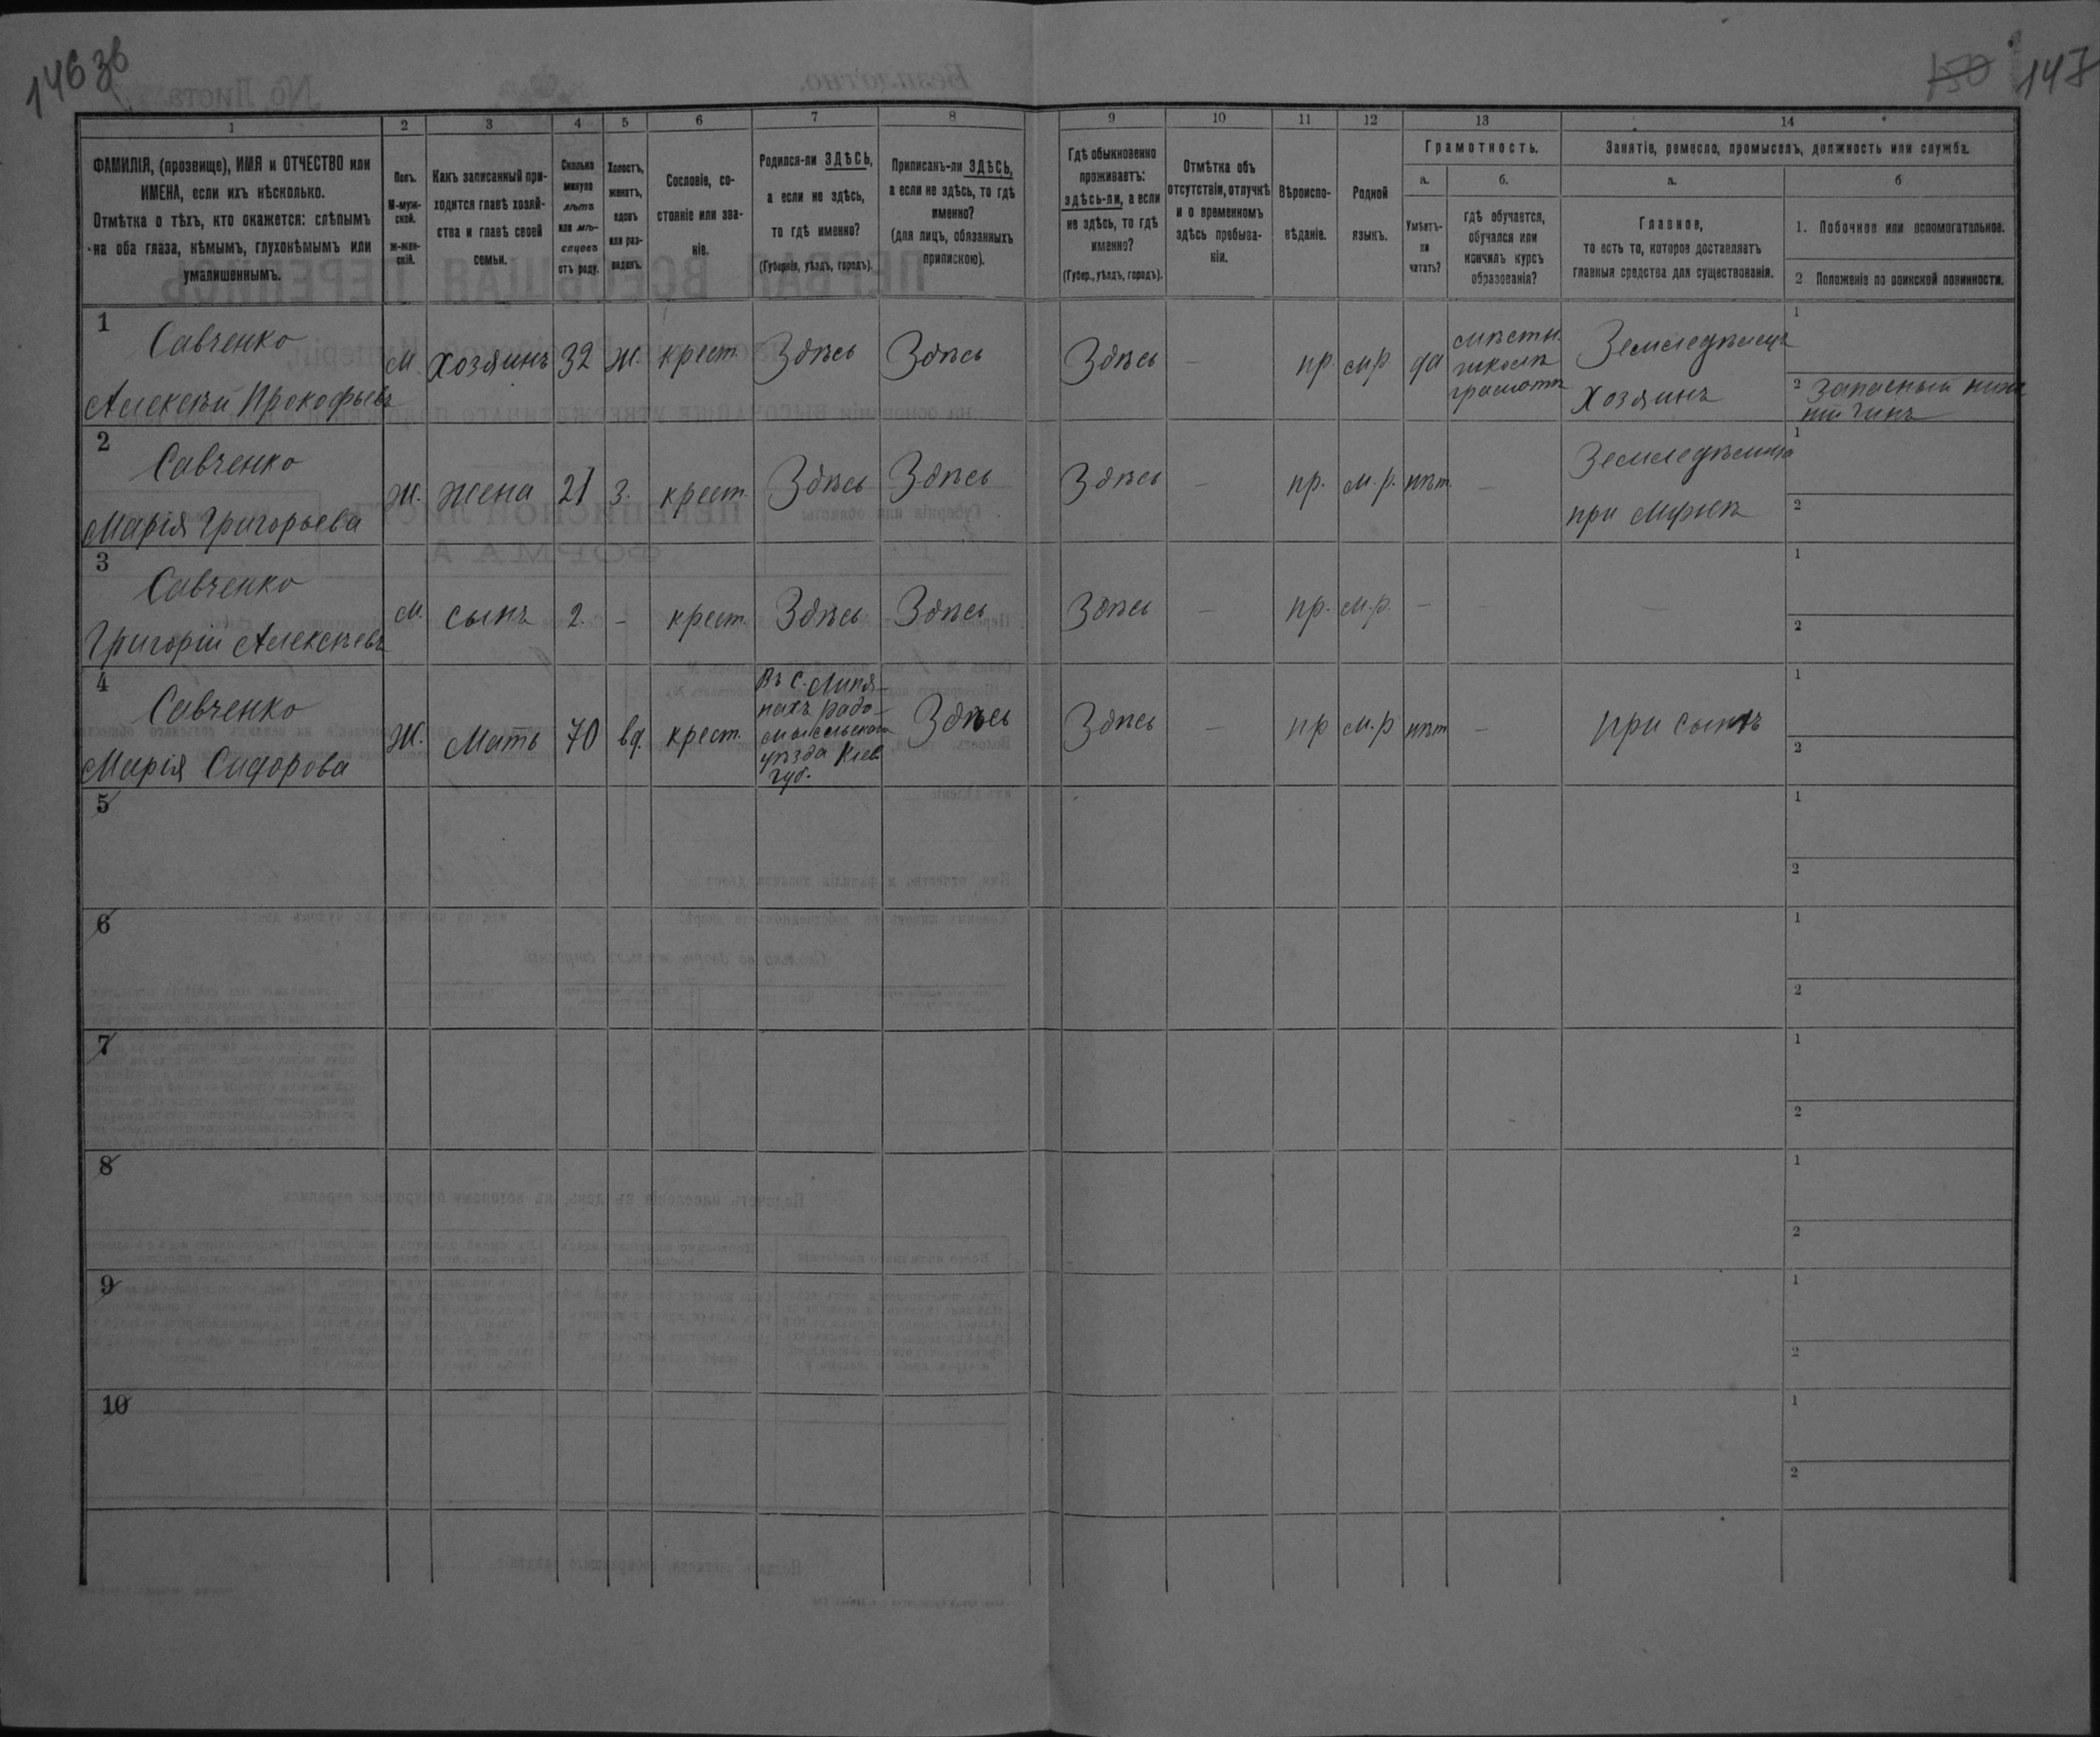 146 зв
150 147
1 2 3 4 5 6 7 8 9 10 11 12 13 14
ФАМИЛІЯ, (прозвище), ИМЯ и ОТЧЕСТВО или
ИМЕНА, если ихъ нѣсколько.
Отмѣтка о тѣхъ, кто окажется: слѣпымъ
на оба глаза, нѣмымъ, глухонѣмымъ или
умалишеннымъ.
Полъ.
М-муж-
ской.
Ж-жен-
скій.
Какъ записанный при-
ходится главѣ хозяй-
ства и главѣ своей
семьи.
Сколько
минуло
лѣтъ
или мѣ-
сяцевъ
отъ роду.
Холостъ,
женатъ,
вдовъ
или раз-
веденъ.
Сословіе, со-
стояніе или зва-
ніе.
Родился-ли ЗДѢСЬ,
а если не здѣсь,
то гдѣ именно?
(Губернія, уѣздъ, городъ).
Приписанъ-ли ЗДѢСЬ,
а если не здѣсь, то гдѣ
именно?
(для лицъ, обязанныхъ
припискою).
Гдѣ обыкновенно
проживаетъ:
здѣсь-ли, а если
не здѣсь, то гдѣ
именно?
(Губер., уѣздъ, городъ).
Отмѣтка объ
отсутствіи, отлучкѣ
и о временномъ
здѣсь пребыва-
ніи.
Вѣроиспо-
вѣданіе.
Родной
языкъ.
Грамотность.
а.
Умѣетъ-
ли
читать?
б.
гдѣ обучается,
обучался или
кончилъ курсъ
образованія?
Занятіе, ремесло, промыселъ, должность или служба.
а.
Главное,
то есть то, которое доставляетъ
главныя средства для существованія.
б
1. Побочное или вспомогательное.
2 Положеніе по воинской повинности.
1
Савченко
Алексѣй Прокофьевъ
М. Хозяинъ 32 ж. крест. Здѣсь Здѣсь Здѣсь - пр. м.р. да
мѣстн.
школѣ
грамотѣ
Земледѣлецъ
Хозяинъ
1
2 Запасный ниж
ній чинъ
2
Савченко
Марія Григорьева
Ж. жена 21 з. крест. Здѣсь Здѣсь Здѣсь - пр. м.р. нѣт. -
Земледѣлица
при мужѣ
1
2
3
Савченко
Григорій Алексѣевъ
М. сынъ 2. - крест. Здѣсь Здѣсь Здѣсь - пр. м.р. - - -
1
2
4
Савченко
Марія Сидорова
Ж. Мать 70 вд. крест.
Въ с. Липля-
нахъ радо-
мысльскаго
уѣзда Кіев.
губ.
Здѣсь Здѣсь - пр м.р нѣт -
при сынѣ
1
2
5
1
2
6
1
2
7
1
2
8
1
2
9
1
2
10
1
2